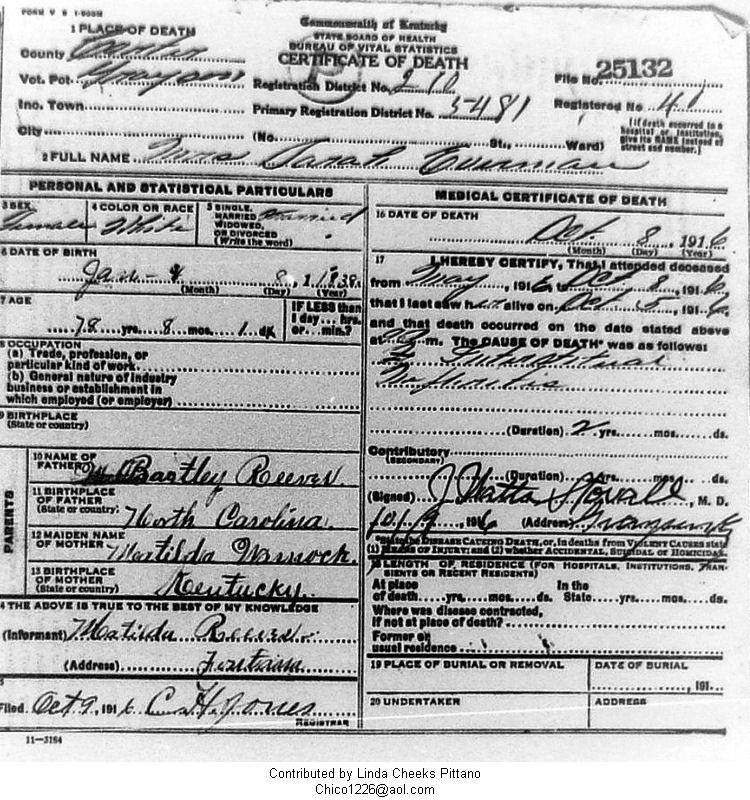 FORM V S 1-500M
Commonwealth of Kentucky
STATE BOARD OF HEALTH
BUREAU OF VITAL STATISTICS
CERTIFICATE OF DEATH
1 PLACE OF DEATH
County Carter
Vot. Pct. Grayson
Inc. Town
City
Registration District No. 210
Primary Registration District No. 5481
File No. 25132
Registered No 41
(No. St., Ward)
[If death occurred in a hospital or institution, give its NAME instead of street and number.]
2 FULL NAME Mrs Sarah
PERSONAL AND STATISTICAL PARTICULARS
3 SEX Female
4 COLOR OR RACE White
5 SINGLE, MARRIED WIDOWED, OR DIVORCED (Write the word) Married
6 DATE OF BIRTH
Jan 8, 1838
(Month) (Day) (Year)
7 AGE
78 yrs. 8 mos. 1 ds
IF LESS than 1 day... hrs. or... min.?
8 OCCUPATION
(a) Trade, profession, or
particular kind of work
(b) General nature of industry
business or establishment in
which employed (or employer)
9 BIRTHPLACE
(State or country)
PARENTS
10 NAME OF FATHER Bartley Reeves
11 BIRTHPLACE OF FATHER (State or country) North Carolina
12 MAIDEN NAME OF MOTHER Matilda Warnock
13 BIRTHPLACE OF MOTHER (State or country) Kentucky
14 THE ABOVE IS TRUE TO THE BEST OF MY KNOWLEDGE
(Informant) Matilda Reeves
(Address)
Filed Oct 9, 1916 C H Jones
REGISTRAR
11-3184
MEDICAL CERTIFICATE OF DEATH
16 DATE OF DEATH
Oct 8, 1916
(Month) (Day) (Year)
17 I HEREBY CERTIFY, That I attended deceased
from May, 1916, Oct 8, 1916,
that I last saw her alive on Oct 5, 1916,
and that death occurred on the date stated above
at m. The CAUSE OF DEATH was as follows:
Interstitial
Nephritis
(Duration) 2 yrs. mos. ds.
Contributory
(SECONDARY)
(Duration) yrs. mos. ds.
(Signed) J Watts Stovall, M. D.
10/9, 1916 (Address)
State the DISEASE CAUSING DEATH, or, in deaths from VIOLENT CAUSES state
(1) MEANS OF INJURY; and (2) whether ACCIDENTAL, SUICIDAL OR HOMICIDAL.
18 LENGTH OF RESIDENCE (FOR HOSPITALS, INSTITUTIONS, TRANSIENTS OR RECENT RESIDENTS)
At place of death yrs. mos. ds. In the State yrs. mos. ds.
Where was disease contracted,
if not at place of death?
Former or
usual residence
19 PLACE OF BURIAL OR REMOVAL
DATE OF BURIAL
, 191
20 UNDERTAKER
ADDRESS
Contributed by Linda Cheeks Pittano
Chico1226@aol.com